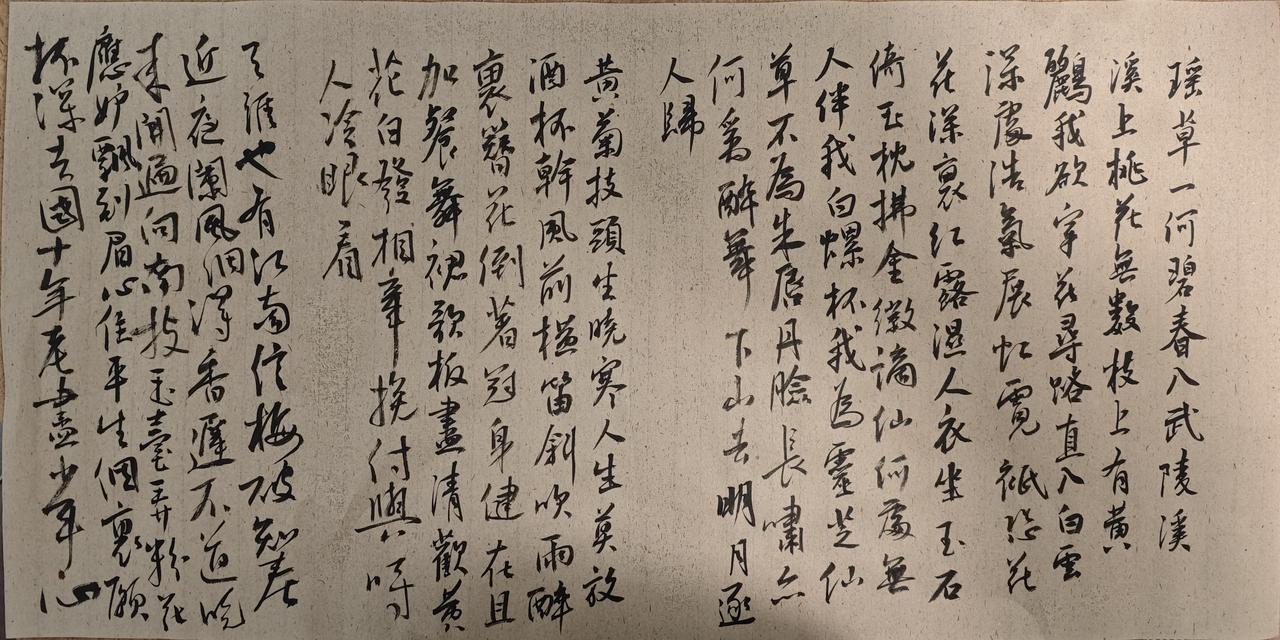 瑶草一何碧春入武陵溪
溪上桃花無數枝上有黄
鸝我欲穿花尋路直入白雲
深處浩氣展虹霓祇恐花
花深裏紅露濕人衣坐玉石
倚玉枕拂金徽謫仙何處無
人伴我白螺杯我為靈芝仙
草不為朱唇丹臉長嘯亦
何爲醉舞下山去明月逐
人歸
黄菊枝頭生曉寒人生莫放
酒杯幹風前橫笛斜吹雨醉
裏簪花倒著冠身健在且
加餐舞裙歌板盡清歡黄
花白發相牽挽付與時
人冷眼看
天涯也有江南信梅破知春
近夜闌風細得香遲不道曉
来開遍向南枝玉臺弄粉花
應妒飄到眉心住平生個裏願
杯深去國十年老盡少年心